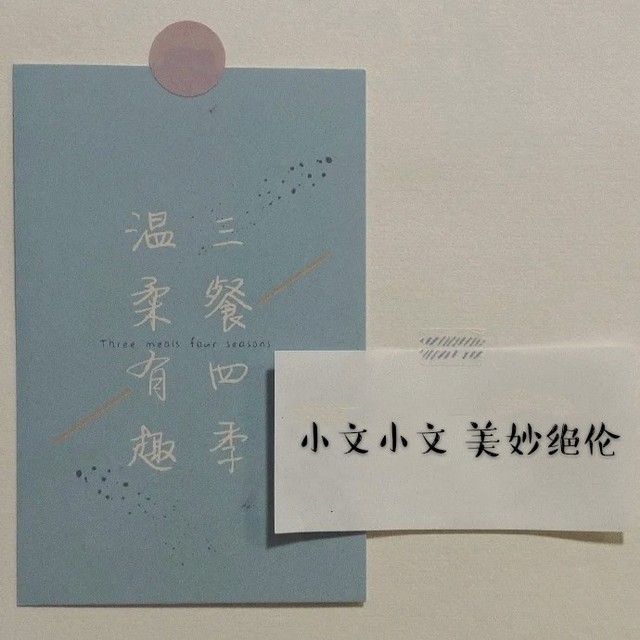 三餐四季
温柔有趣
Three meals four seasons
小文小文 美妙绝伦